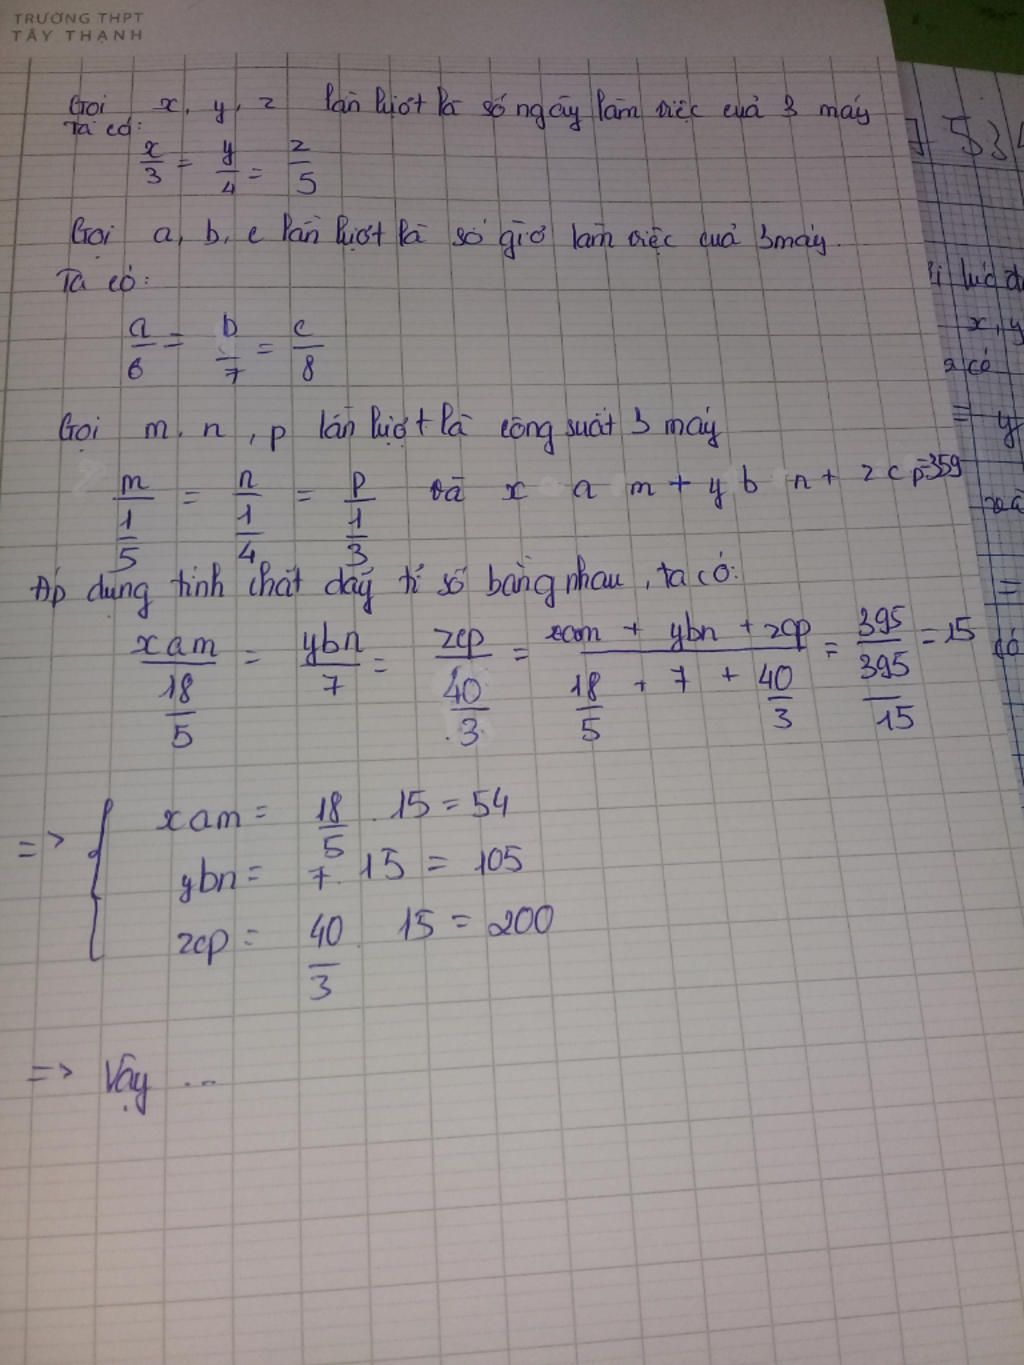 TRƯỜNG THPT
TÂY THẠNH
Gọi x, y, z lần lượt là số ngày làm việc của 3 máy
Ta có:
x/3 = y/4 = z/5
Gọi a, b, c lần lượt là số giờ làm việc của 3 máy.
Ta có:
a/6 = b/7 = c/8
Gọi m, n, p lần lượt là công suất 3 máy
m/(1/5) = n/(1/4) = p/(1/3) và x a m + y b n + z c p = 359
Áp dụng tính chất dãy tỉ số bằng nhau, ta có:
xam/(18/5) = ybn/7 = zcp/(40/3) = (xam + ybn + zcp)/(18/5 + 7 + 40/3) = 395/(395/15) = 15
=> { xam = 18/5 . 15 = 54
ybn = 7 . 15 = 105
zcp = 40/3 15 = 200
=> Vậy ...
7 534
x, y
có
= y
=